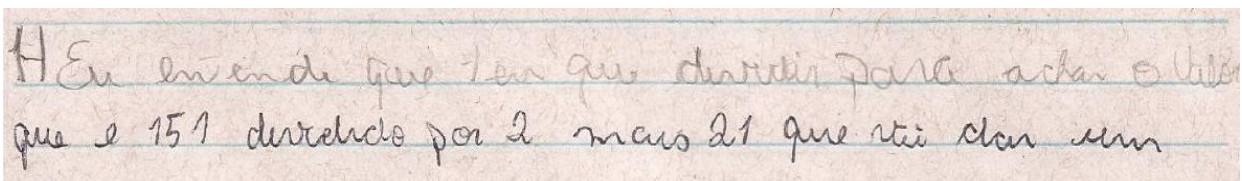 H Eu entende que ten que dividir para achar o valor
que e 151 dividido por 2 mais 21 que vai dar um